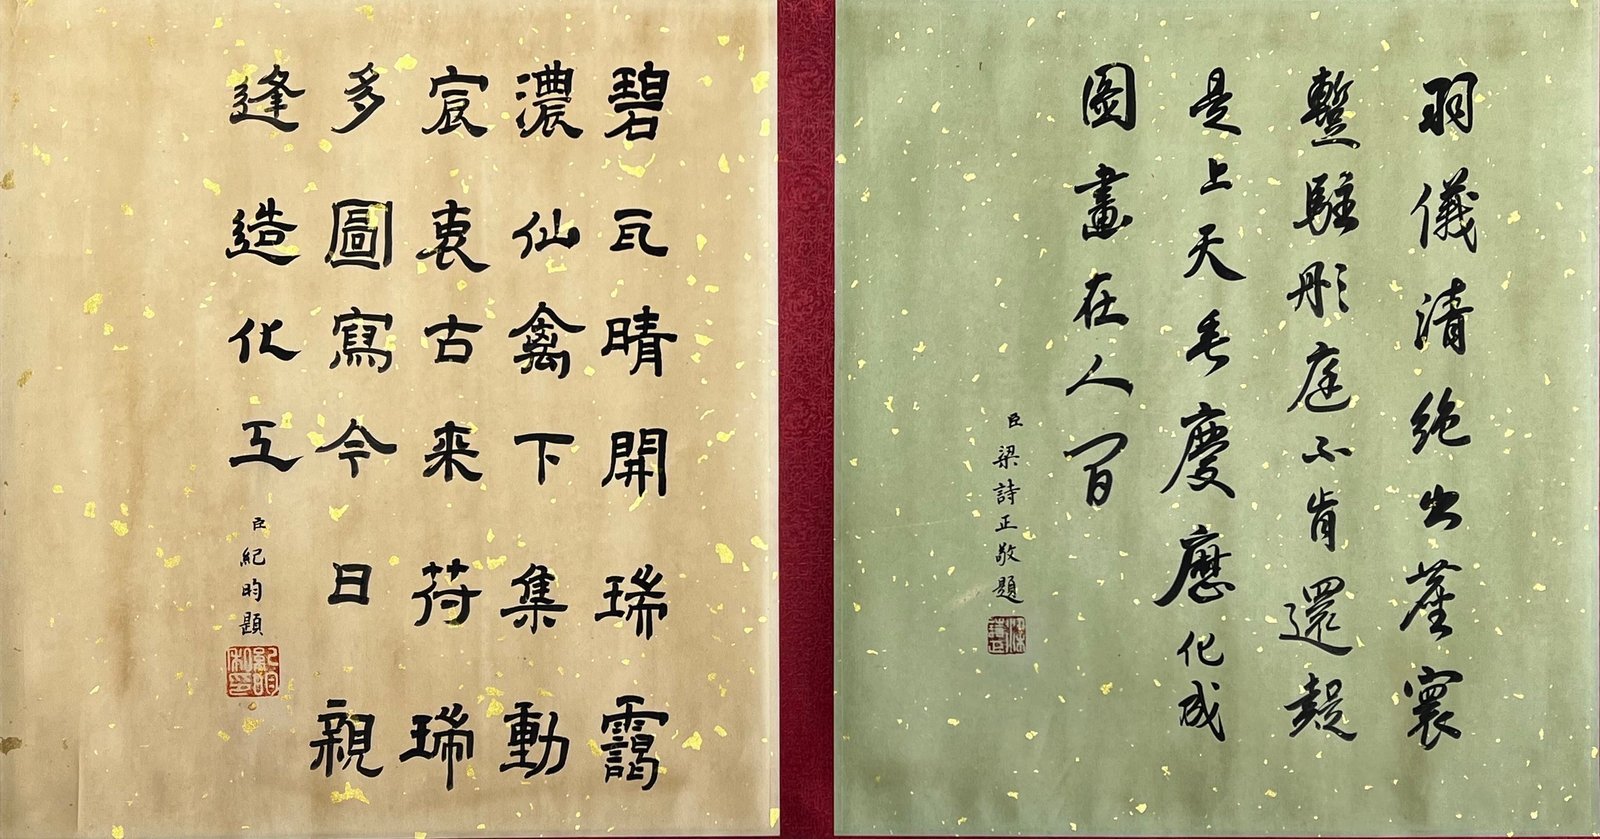 羽儀清絶出塵寰
暫駐彤庭不肯還疑
是上天垂慶應化成
圖畫在人間
臣梁詩正敬題
碧瓦晴開瑞靄
濃仙禽下集動
宸衷古来荷瑞
多圖寫今日親
逢造化工
臣紀昀題